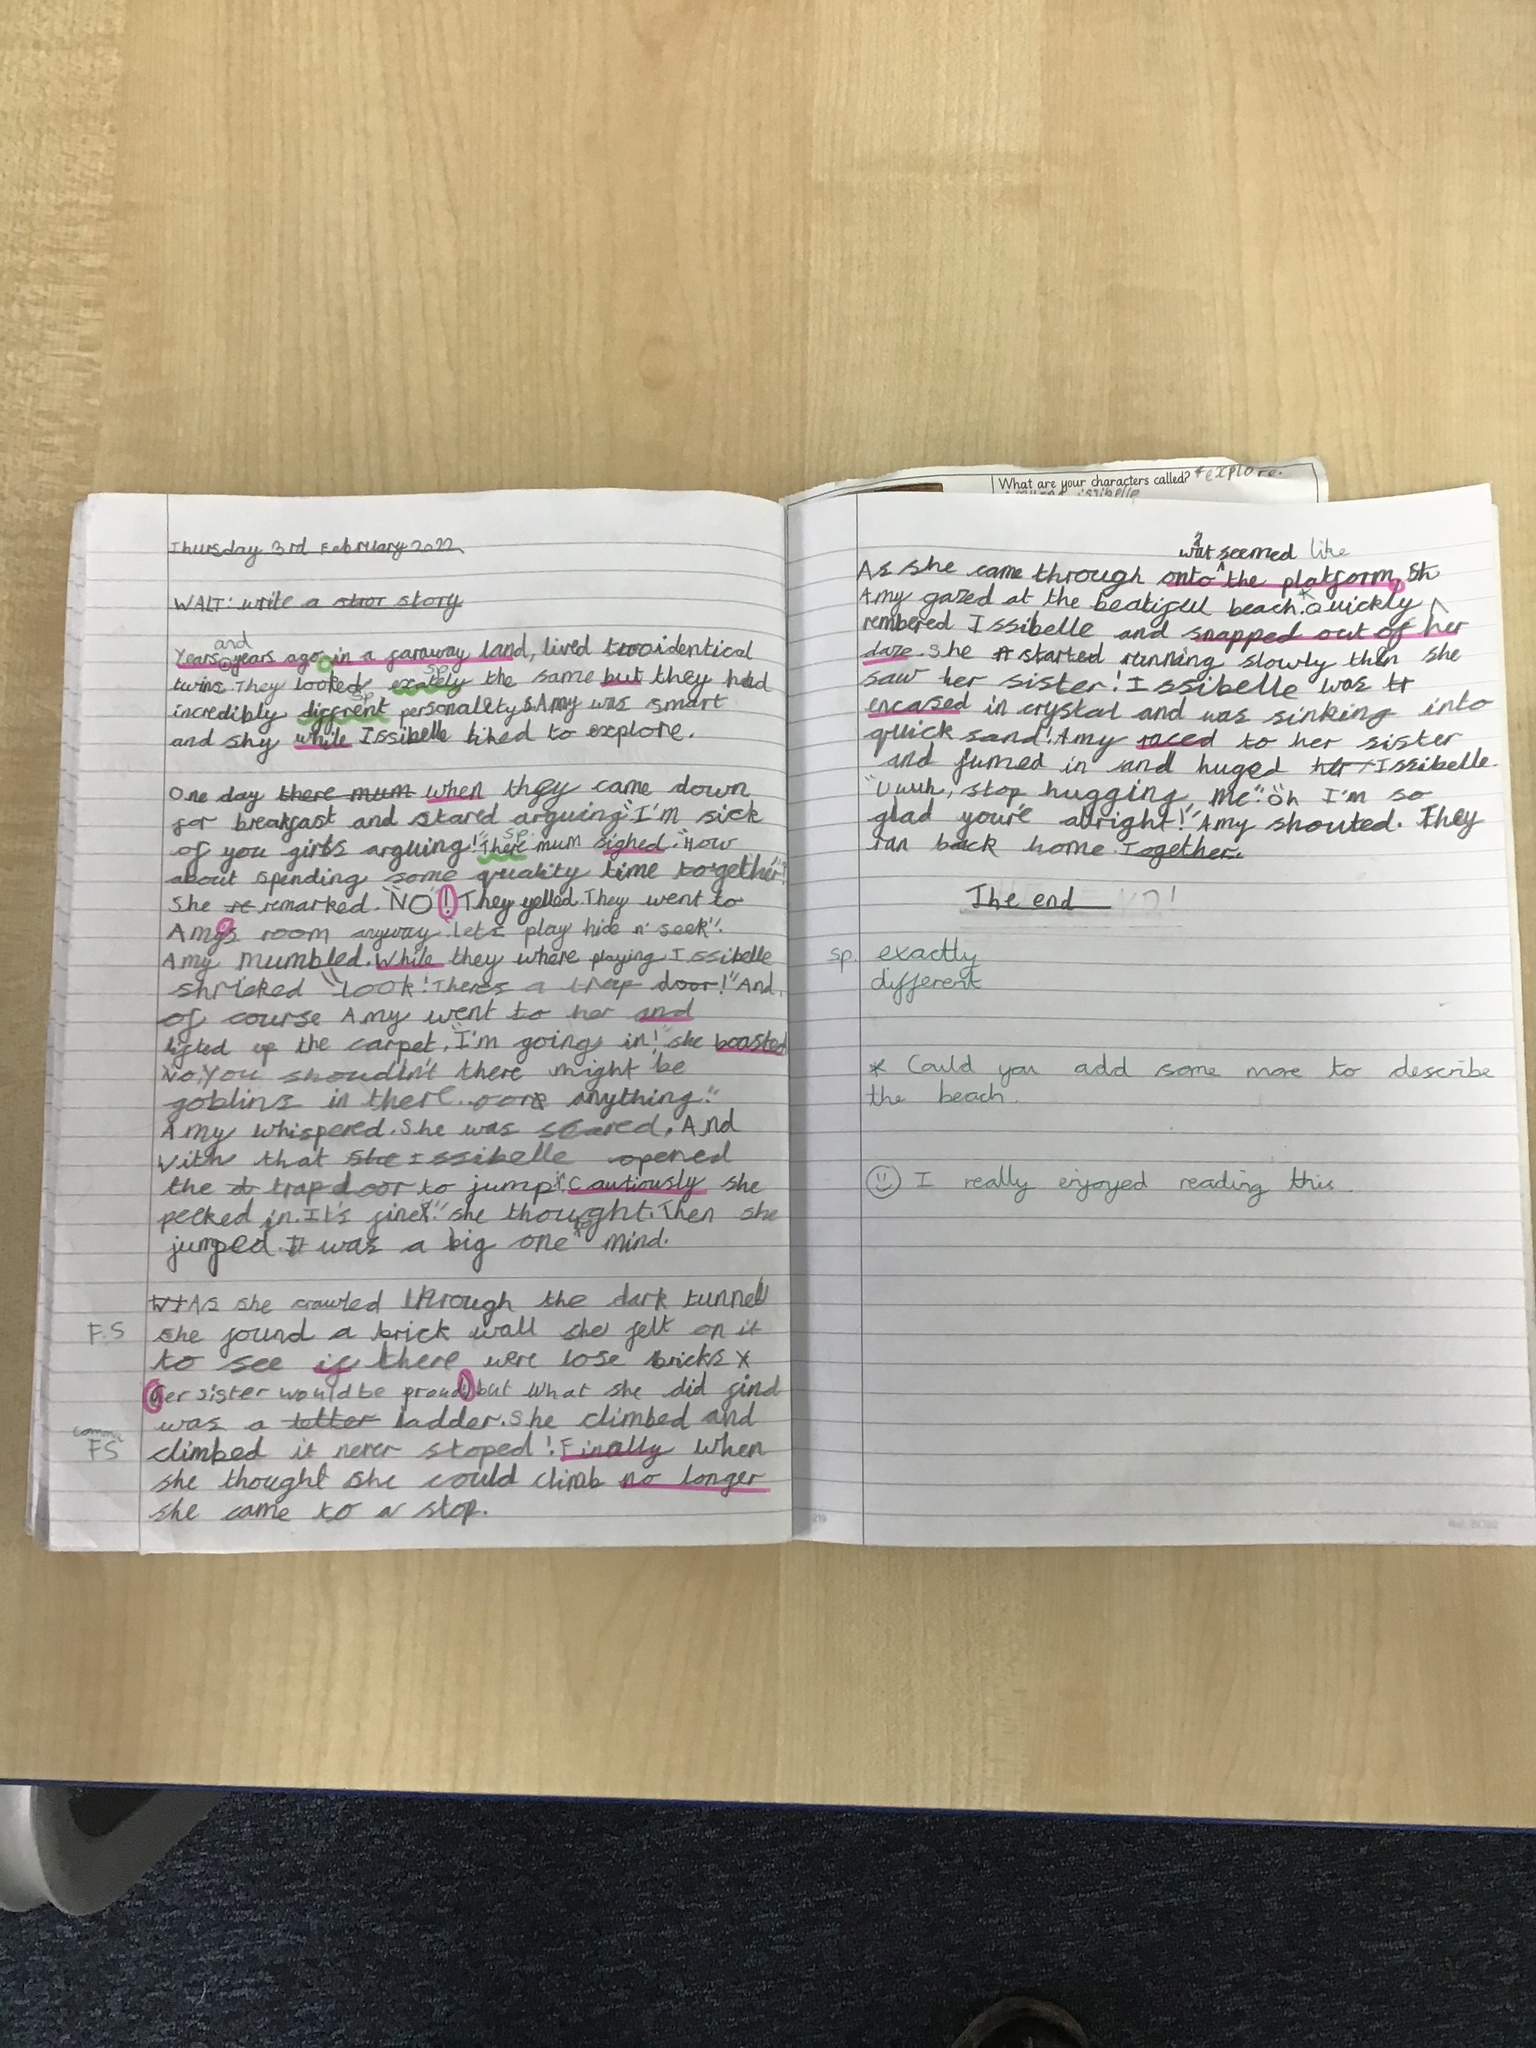 Thursday 3rd February 2022
WALT: write a stror story
and
Years years ago in a faraway land, lived two identical
sp
twins. They looked exately the same but they had
sp
incredibly diffrent personalitys. Amy was smart
and shy while Issibelle liked to explore.
One day there mum when they came down
for breakfast and stared arguing "I'm sick
sp.
of you girls arguing!" There mum sighed. "How
about spending some quality time together!"
She re remarked. "NO! They yelled. They went to
Amy's room anyway "Let's play hide n' seek".
Amy mumbled. While they where playing Issibelle
shricked "look! Theres a trap door!" And
of course Amy went to her and
lifted up the carpet, "I'm going in!" she boasted
No, You shouldn't there might be
goblins in there... anything."
Amy whispered. She was scared. And
with that she Issibelle opened
the d trap door to jump. Cautiously she
peeked in. It's fine." she thought. Then she
jumped. It was a big one mind.
As she crawled through the dark tunnel
F.S she found a brick wall she felt on it
to see if there were lose bricks
(Her sister would be proud) but what she did find
was a letter ladder. She climbed and
comma
FS climbed it never stoped! Finally when
she thought she could climb no longer
she came to a stop.
What are your characters called? explore.
issibelle
2
wat seemed like
As she came through onto the platform, sh
Amy gazed at the beatiful beach. Quickly
rembered Issibelle and snapped out of her
daze. She started running slowly then she
saw her sister! Issibelle was tr
encased in crystal and was sinking into
quick sand! Amy raced to her sister
and jumed in and huged her Issibelle.
"Uuuh, stop hugging me" "Oh I'm so
glad you're alright!" Amy shouted. They
ran back home Together.
The end
sp. exactly
different
* Could you add some more to describe
the beach.
I really enjoyed reading this.